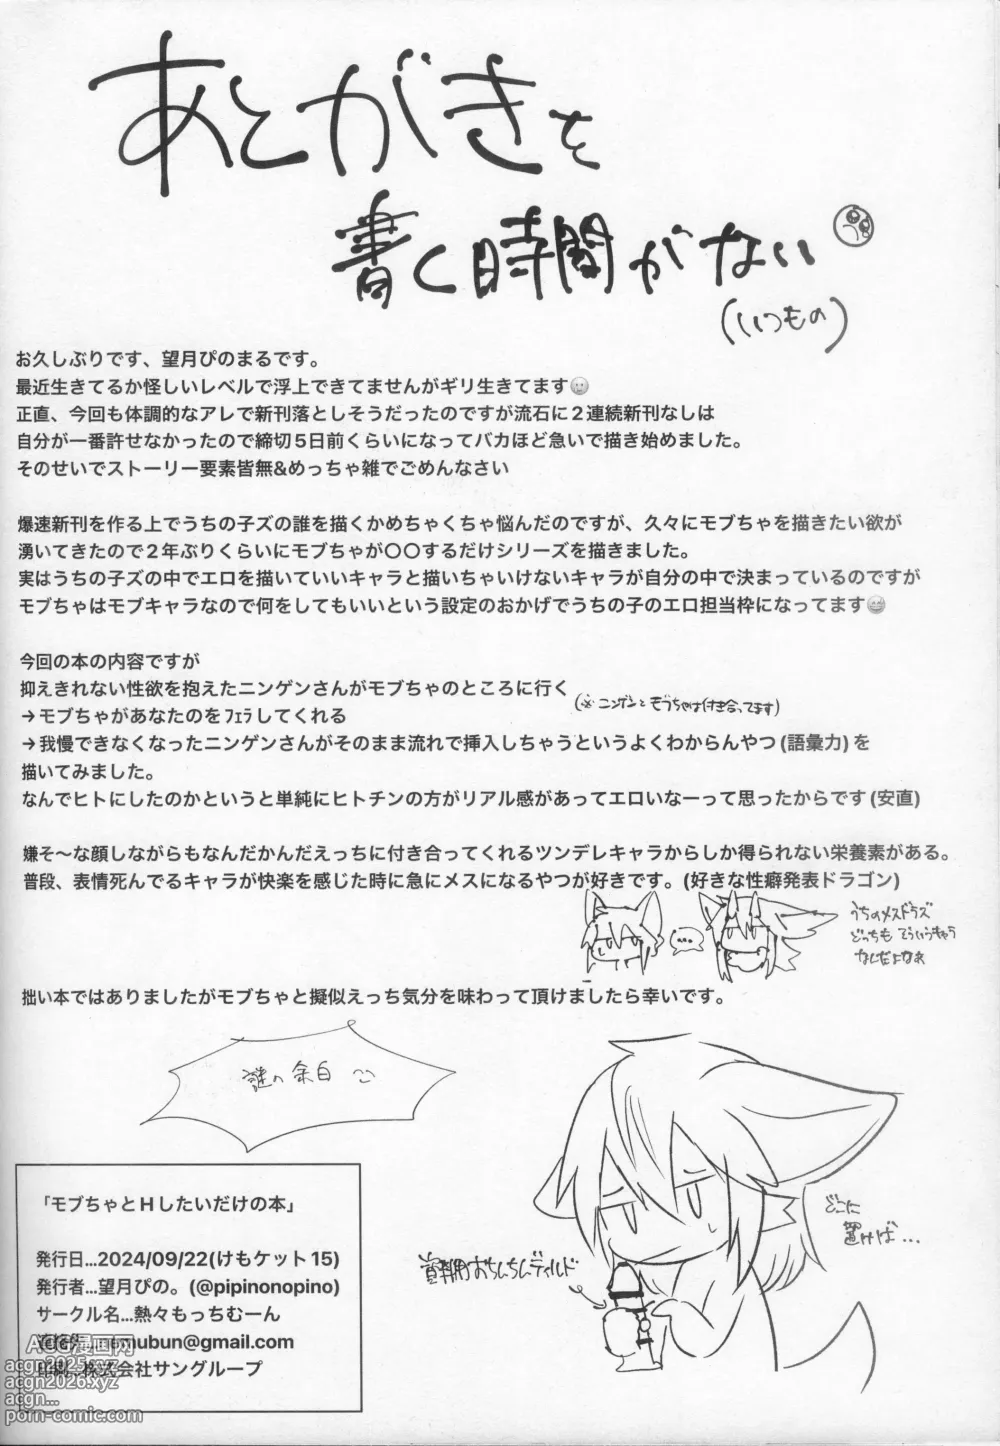 あとがきを
書く時間がない
(いつもの)
お久しぶりです、望月ぴのまるです。
最近生きてるか怪しいレベルで浮上できてませんがギリ生きてます
正直、今回も体調的なアレで新刊落としそうだったのですが流石に２連続新刊なしは
自分が一番許せなかったので締切５日前くらいになってバカほど急いで描き始めました。
そのせいでストーリー要素皆無&めっちゃ雑でごめんなさい
爆速新刊を作る上でうちの子ズの誰を描くかめちゃくちゃ悩んだのですが、久々にモブちゃを描きたい欲が
湧いてきたので２年ぶりくらいにモブちゃが〇〇するだけシリーズを描きました。
実はうちの子ズの中でエロを描いていいキャラと描いちゃいけないキャラが自分の中で決まっているのですが
モブちゃはモブキャラなので何をしてもいいという設定のおかげでうちの子のエロ担当枠になってます
今回の本の内容ですが
抑えきれない性欲を抱えたニンゲンさんがモブちゃのところに行く
(※ニンゲンとモブちゃは付き合ってます)
→モブちゃがあなたのをﾌｪﾗしてくれる
→我慢できなくなったニンゲンさんがそのまま流れで挿入しちゃうというよくわからんやつ(語彙力)を
描いてみました。
なんでヒトにしたのかというと単純にヒトチンの方がリアル感があってエロいなーって思ったからです(安直)
嫌そ〜な顔しながらもなんだかんだえっちに付き合ってくれるツンデレキャラからしか得られない栄養素がある。
普段、表情死んでるキャラが快楽を感じた時に急にメスになるやつが好きです。(好きな性癖発表ドラゴン)
…
うちのメスドラズ
どっちもそういうキャラ
なんだよなぁ
拙い本ではありましたがモブちゃと擬似えっち気分を味わって頂けましたら幸いです。
謎の余白
どこに
置けば…
おちんちんデッサルド
「モブちゃとHしたいだけの本」
発行日...2024/09/22(けもケット15)
発行者...望月ぴの。(@pipinonopino)
サークル名...熱々もっちむーん
mubun@gmail.com
印刷...株式会社サングループ
ACG漫画网
acgn2025.xyz
acgn2026.xyz
acgn...
porn-comic.com